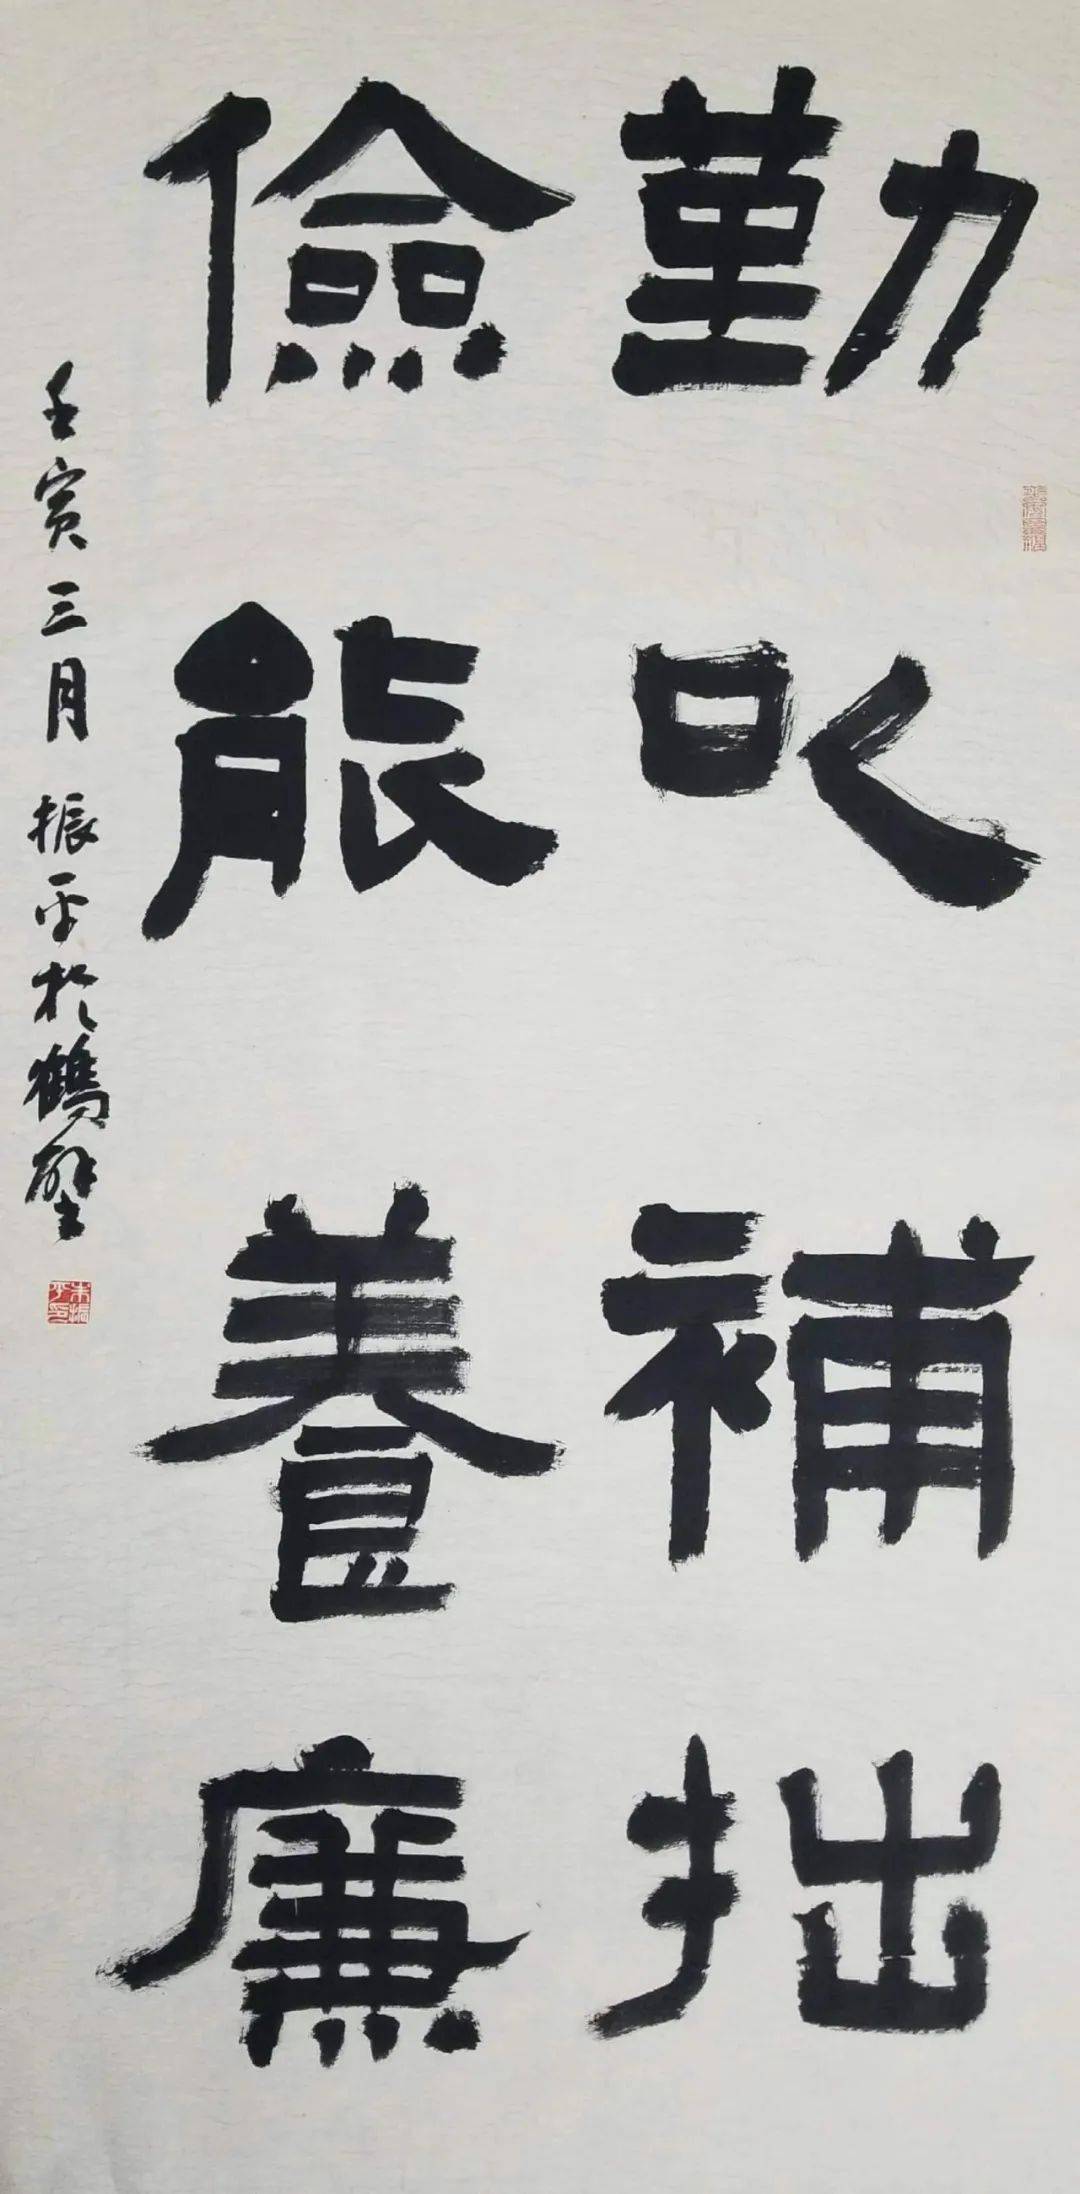 勤以補拙
儉能養廉
壬寅三月振平於鶴壁
朱振平印